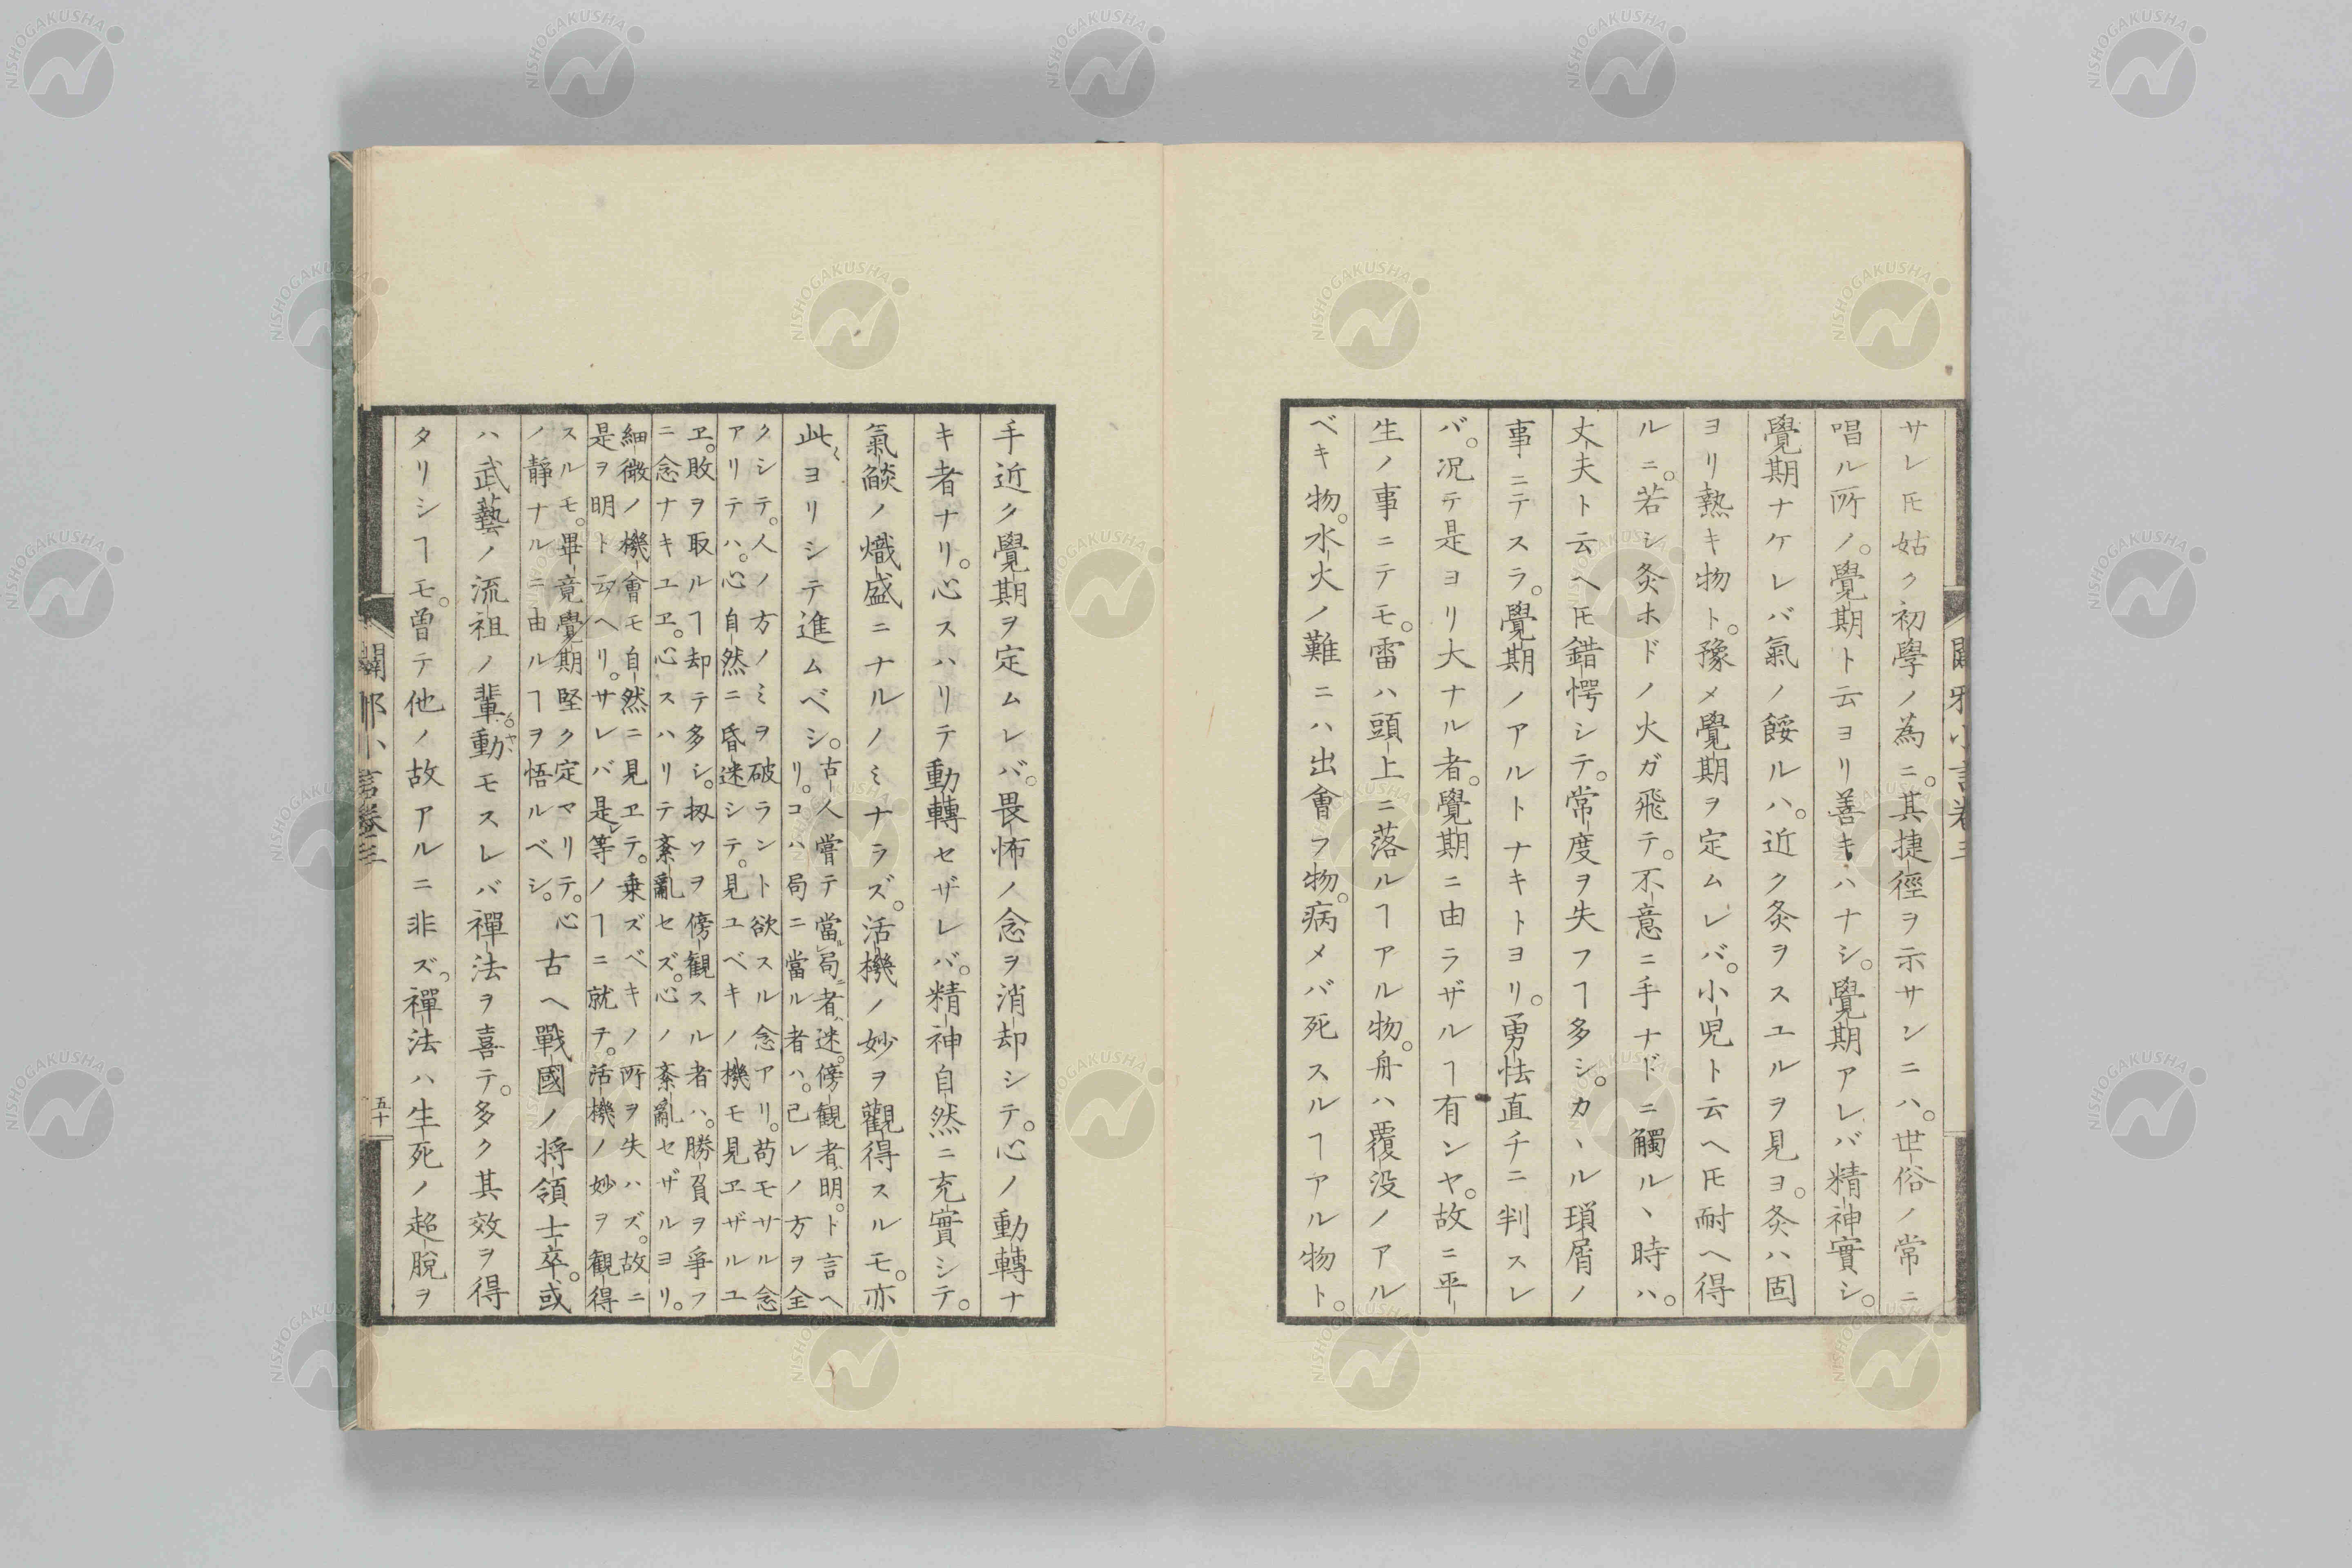 サレ𪜈姑ク初學ノ為ニ。其捷徑ヲ示サンニハ。世俗ノ常ニ
唱ル所ノ。覺期ト云ヨリ善キハナシ。覺期アレバ精神實シ。
覺期ナケレバ氣ノ餒ルハ。近ク灸ヲスエルヲ見ヨ。灸ハ固
ヨリ熱キ物ト。豫メ覺期ヲ定ムレバ。小児ト云ヘ𪜈耐ヘ得
ルニ。若シ灸ホドノ火ガ飛テ。不意ニ手ナドニ觸ルヽ時ハ。
丈夫ト云ヘ𪜈錯愕シテ。常度ヲ失フヿ多シ。カヽル瑣屑ノ
事ニテスラ。覺期ノアルトナキトヨリ。勇怯直チニ判スレ
バ。況テ是ヨリ大ナル者。覺期ニ由ラザルヿ有ンヤ。故ニ平
生ノ事ニテモ。雷ハ頭上ニ落ルヿアル物。舟ハ覆没ノアル
ベキ物。水火ノ難ニハ出會フ物。病メバ死スルヿアル物ト。
手近ク覺期ヲ定ムレバ。畏怖ノ念ヲ消却シテ。心ノ動轉ナ
キ者ナリ。心スハリテ動轉セザレバ。精神自然ニ充實シテ。
氣燄ノ熾盛ニナルノミナラズ。活機ノ妙ヲ觀得スルモ。亦
此ヨリシテ進ムベシ。
古人嘗テ當局者迷。傍観者明。ト言ヘ
リ。コハ局ニ當ル者ハ。己レノ方ヲ全
クシテ。人ノ方ノミヲ破ラント欲スル念アリ。苟モサル念
アリテハ。心自然ニ昏迷シテ。見ユベキノ機モ見ヱザルユ
ヱ。敗ヲ取ルヿ却テ多シ。扨ソヲ傍観スル者ハ。勝負ヲ爭フ
ニ念ナキユヱ。心スハリテ紊亂セズ。心ノ紊亂セザルヨリ。
細微ノ機會モ自然ニ見ヱテ。乗ズベキノ所ヲ失ハズ。故ニ
是ヲ明ト云ヘリ。サレバ是等ノヿニ就テ。活機ノ妙ヲ観得
スルモ。畢竟覺期堅ク定マリテ。心
ノ靜ナルニ由ルヿヲ悟ルベシ。
古ヘ戰國ノ将領士卒。或
ハ武藝ノ流祖ノ輩動モスレバ禪法ヲ喜テ。多ク其效ヲ得
タリシヿモ。曽テ他ノ故アルニ非ズ。禪法ハ生死ノ超脱ヲ
闢邪小言卷三
五十